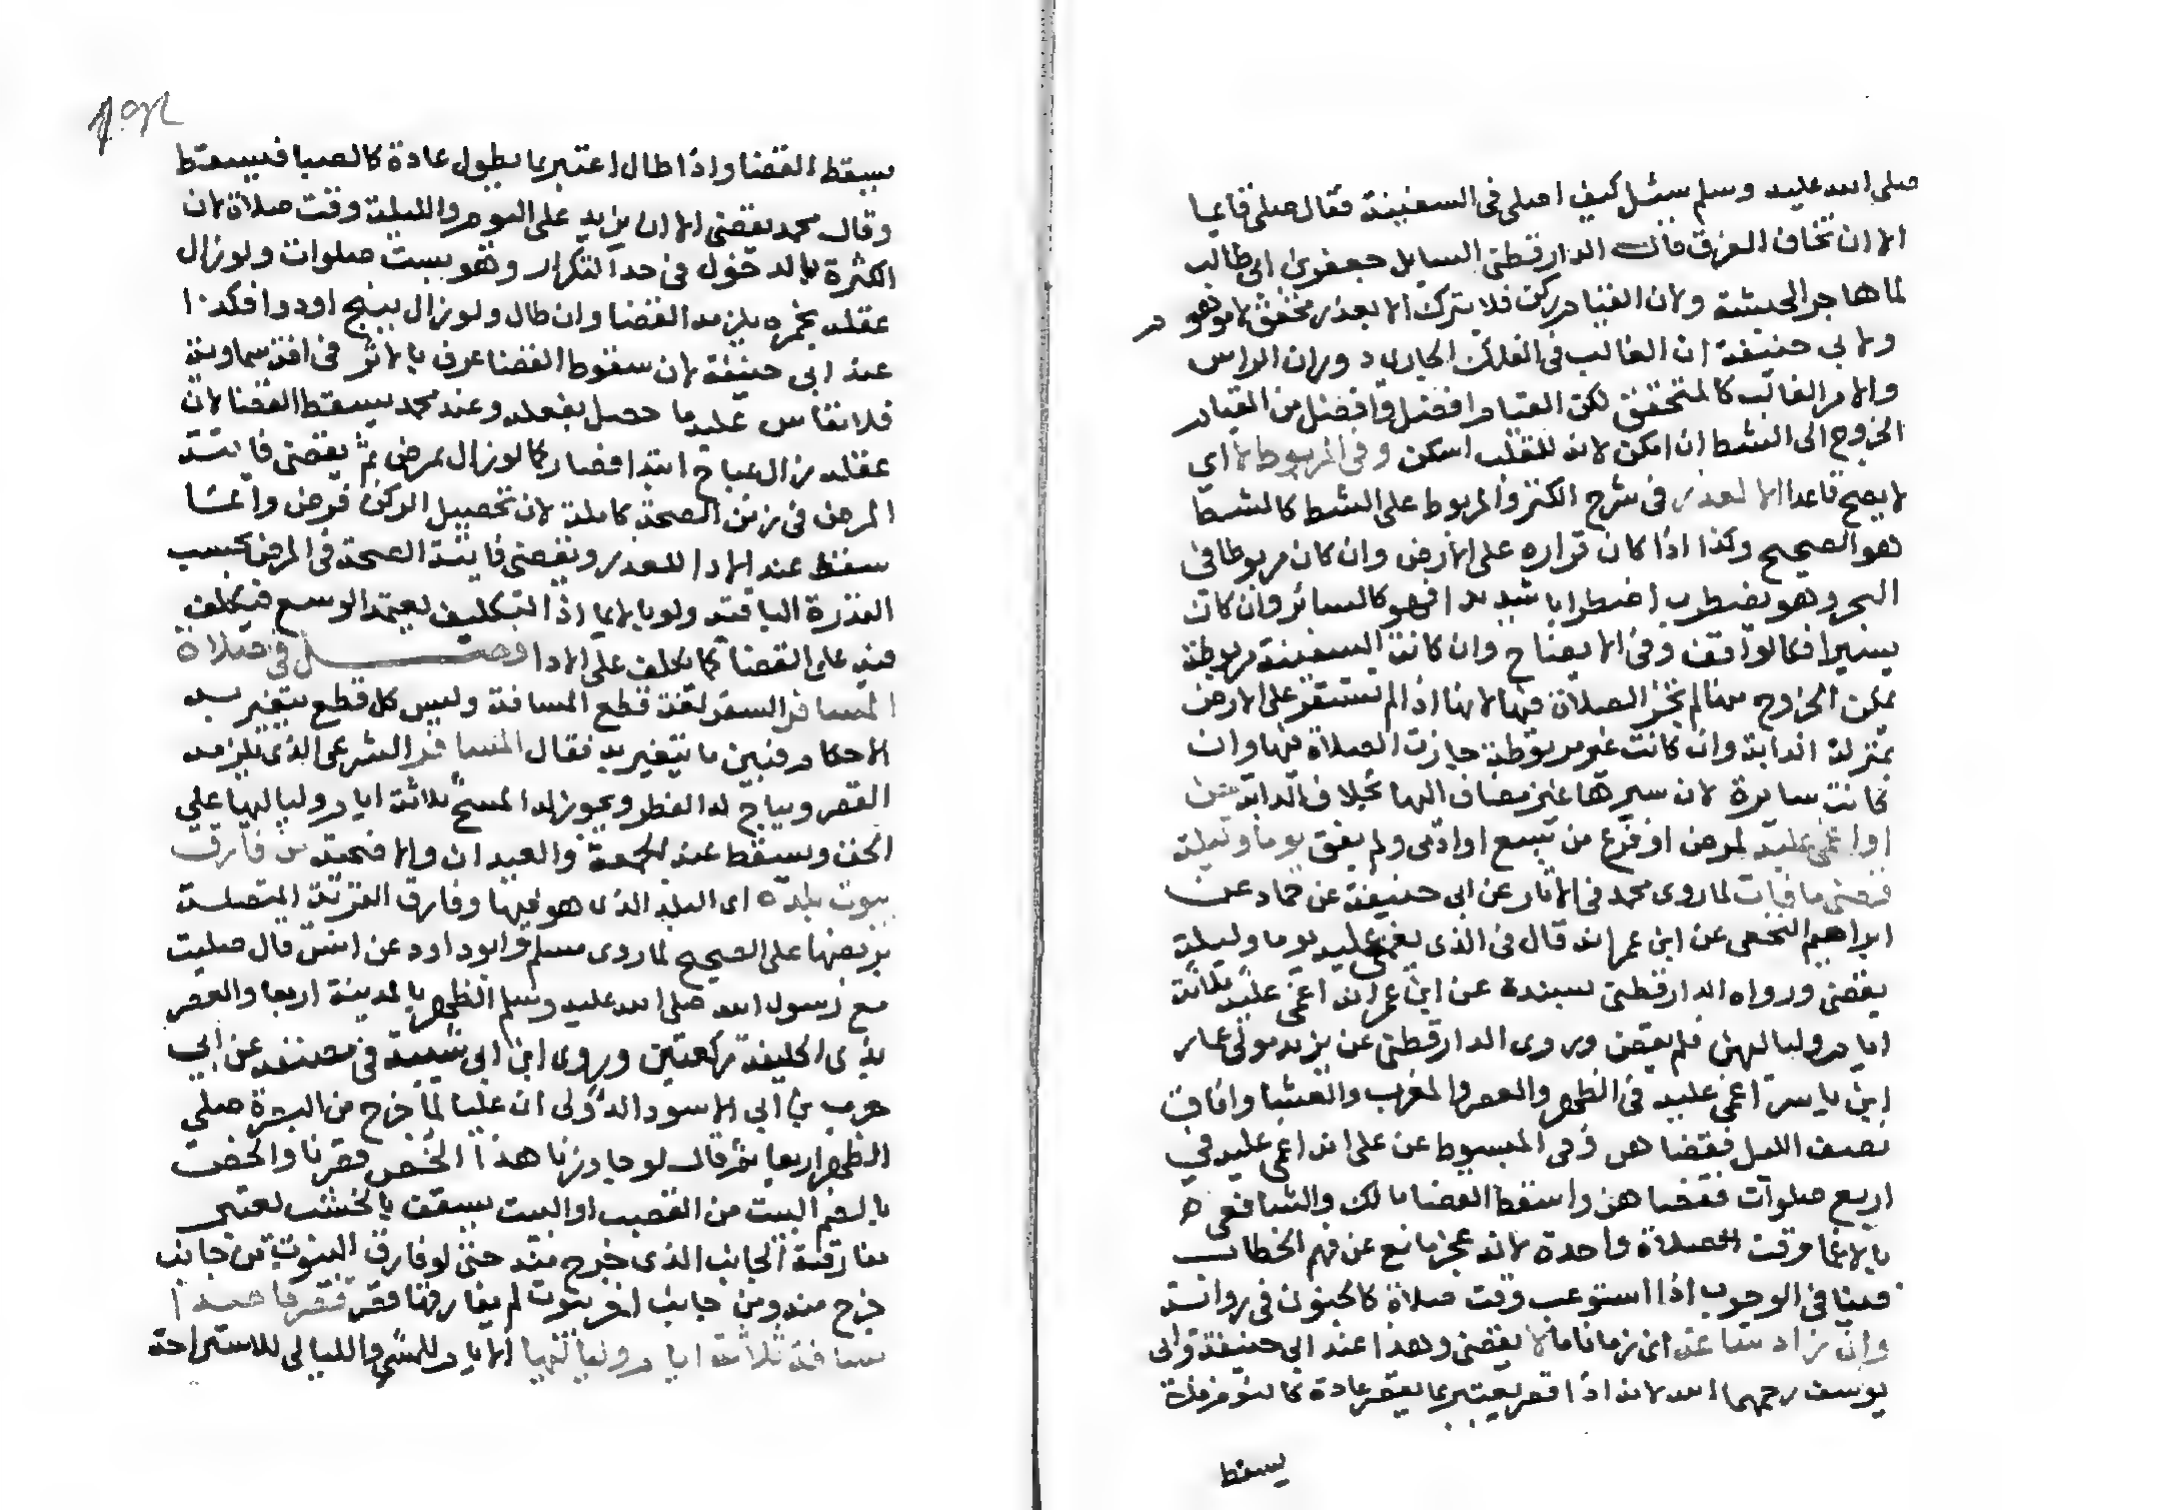 صلى الله عليه وسلم سئل كيف اصلي في السفينة فقال صل قايما
الا ان تخاف الغرق قال الدارقطني السايل جعفر بن ابي طالب
لما هاجر الحبشة ولان القيام ركن فلا يترك الا بعذر محقق لا موهوم
ولابي حنيفة ان الغالب في الفلك الجاري دوران الراس
والامر الغالب كالمتحقق لكن القيام افضل وافضل من القيام
الخروج الى الشط ان امكن لانه للقلب اسكن وفي المربوط لا اي
لا يصح قاعدا الا لعذر في شرح الكنز والمربوط على الشط كالشط
هو الصحيح وكذا اذا كان قراره على الارض وان كان مربوطا في
البحر وهو يضطرب اضطرابا شديدا فهو كالسائر وان كان
يسيرا فكالواقف وفي الايضاح وان كانت السفينة مربوطة
يمكن الخروج منها لم تجز الصلاة فيها لانها اذا لم تستقر على الارض
بمنزلة الدابة وان كانت غير مربوطة جازت الصلاة فيها وان
كانت سايرة لان سيرها غير مضاف اليها بخلاف الدابة من
او اغمي عليه لمرض او فزع من سبع او ادمى ولم يفق يوما وليلة
قضى ما فات لما روى محمد في الاثار عن ابي حنيفة عن حماد عن
ابراهيم النخعي عن ابن عمر انه قال في الذي يغمى عليه يوما وليلة
يقضي ورواه الدارقطني بسنده عن ابن عمر انه اغمي عليه ثلاثة
ايام ولياليهن فلم يقض وروى الدارقطني عن يزيد مولى عمار
ابن ياسر اغمي عليه في الظهر والعصر والمغرب والعشا وافاق
نصف الليل فقضاهن وفي المبسوط عن علي انه اغمي عليه في
اربع صلوات فقضاهن واسقط القضا مالك والشافعي
بالاغما وقت الصلاة واحدة لانه عجز مانع عن فهم الخطاب
فينافي الوجوب اذا استوعب وقت صلاة كالجنون في رواية
وان زاد ساعة اي زمانا ما لا يقضي وهذا عند ابي حنيفة وابي
يوسف رحمهما الله لانه اذا قصر يعتبر بما يقصر عادة كالنوم فلا
يسقط
يسقط القضا واذا طال اعتبر بما يطول عادة كالصبا فيسقط
وقال محمد يقضي الا ان يزيد على اليوم والليلة وقت صلاة لان
الكثرة بالدخول في حد التكرار وهو بست صلوات ولو زال
عقله بخمر يلزمه القضا وان طال ولو زال ببنج او دوا فكذا
عند ابي حنيفة لان سقوط القضا عرف بالاثر في افة سماوية
فلا يقاس عليه ما حصل بفعله وعند محمد يسقط القضا لان
عقله زال بمباح ابتدا فصار كما لو زال بمرض ثم يقضي فايتة
المرض في زمن الصحة كاملة لان تحصيل الركن فرض وانما
سقط عند الادا للعذر ويقضي فايتة الصحة في المرض بحسب
القدرة الباقية ولو بالايما اذ التكليف يعتمد الوسع فيكلف
فيه على القضا كما يكلف على الادا فصل في صلاة
المسافر السفر لغة قطع المسافة وليس كل قطع يتغير به
الاحكام فبين ما يتغير به فقال المسافر الشرعي الذي يلزمه
القصر ويباح له الفطر ويجوز له المسح ثلاثة ايام ولياليها على
الخف ويسقط عنه الجمعة والعيدان والاضحية من فارق
بيوت بلده اي البلد الذي هو فيها وفارق القرية المتصلة
بربضها على الصحيح لما روى مسلم وابو داود عن انس قال صليت
مع رسول الله صلى الله عليه وسلم الظهر بالمدينة اربعا والعصر
بذي الحليفة ركعتين وروى ابن ابي شيبة في مصنفه عن ابي
حرب بن ابي الاسود الدؤلي ان عليا لما خرج من البصرة صلى
الظهر اربعا ثم قال لو جاوزنا هذا الخص قصرنا والخص
بالضم البيت من القصب او البيت يسقف بالخشب يعتبر
مفارقة الجانب الذي خرج منه حتى لو فارق البيوت من جانب
خرج منه ومن جانب اخر بيوت لم يفارقها قصر قاصدا
مسافة ثلاثة ايام ولياليها الايام للمشي والليالي للاستراحة